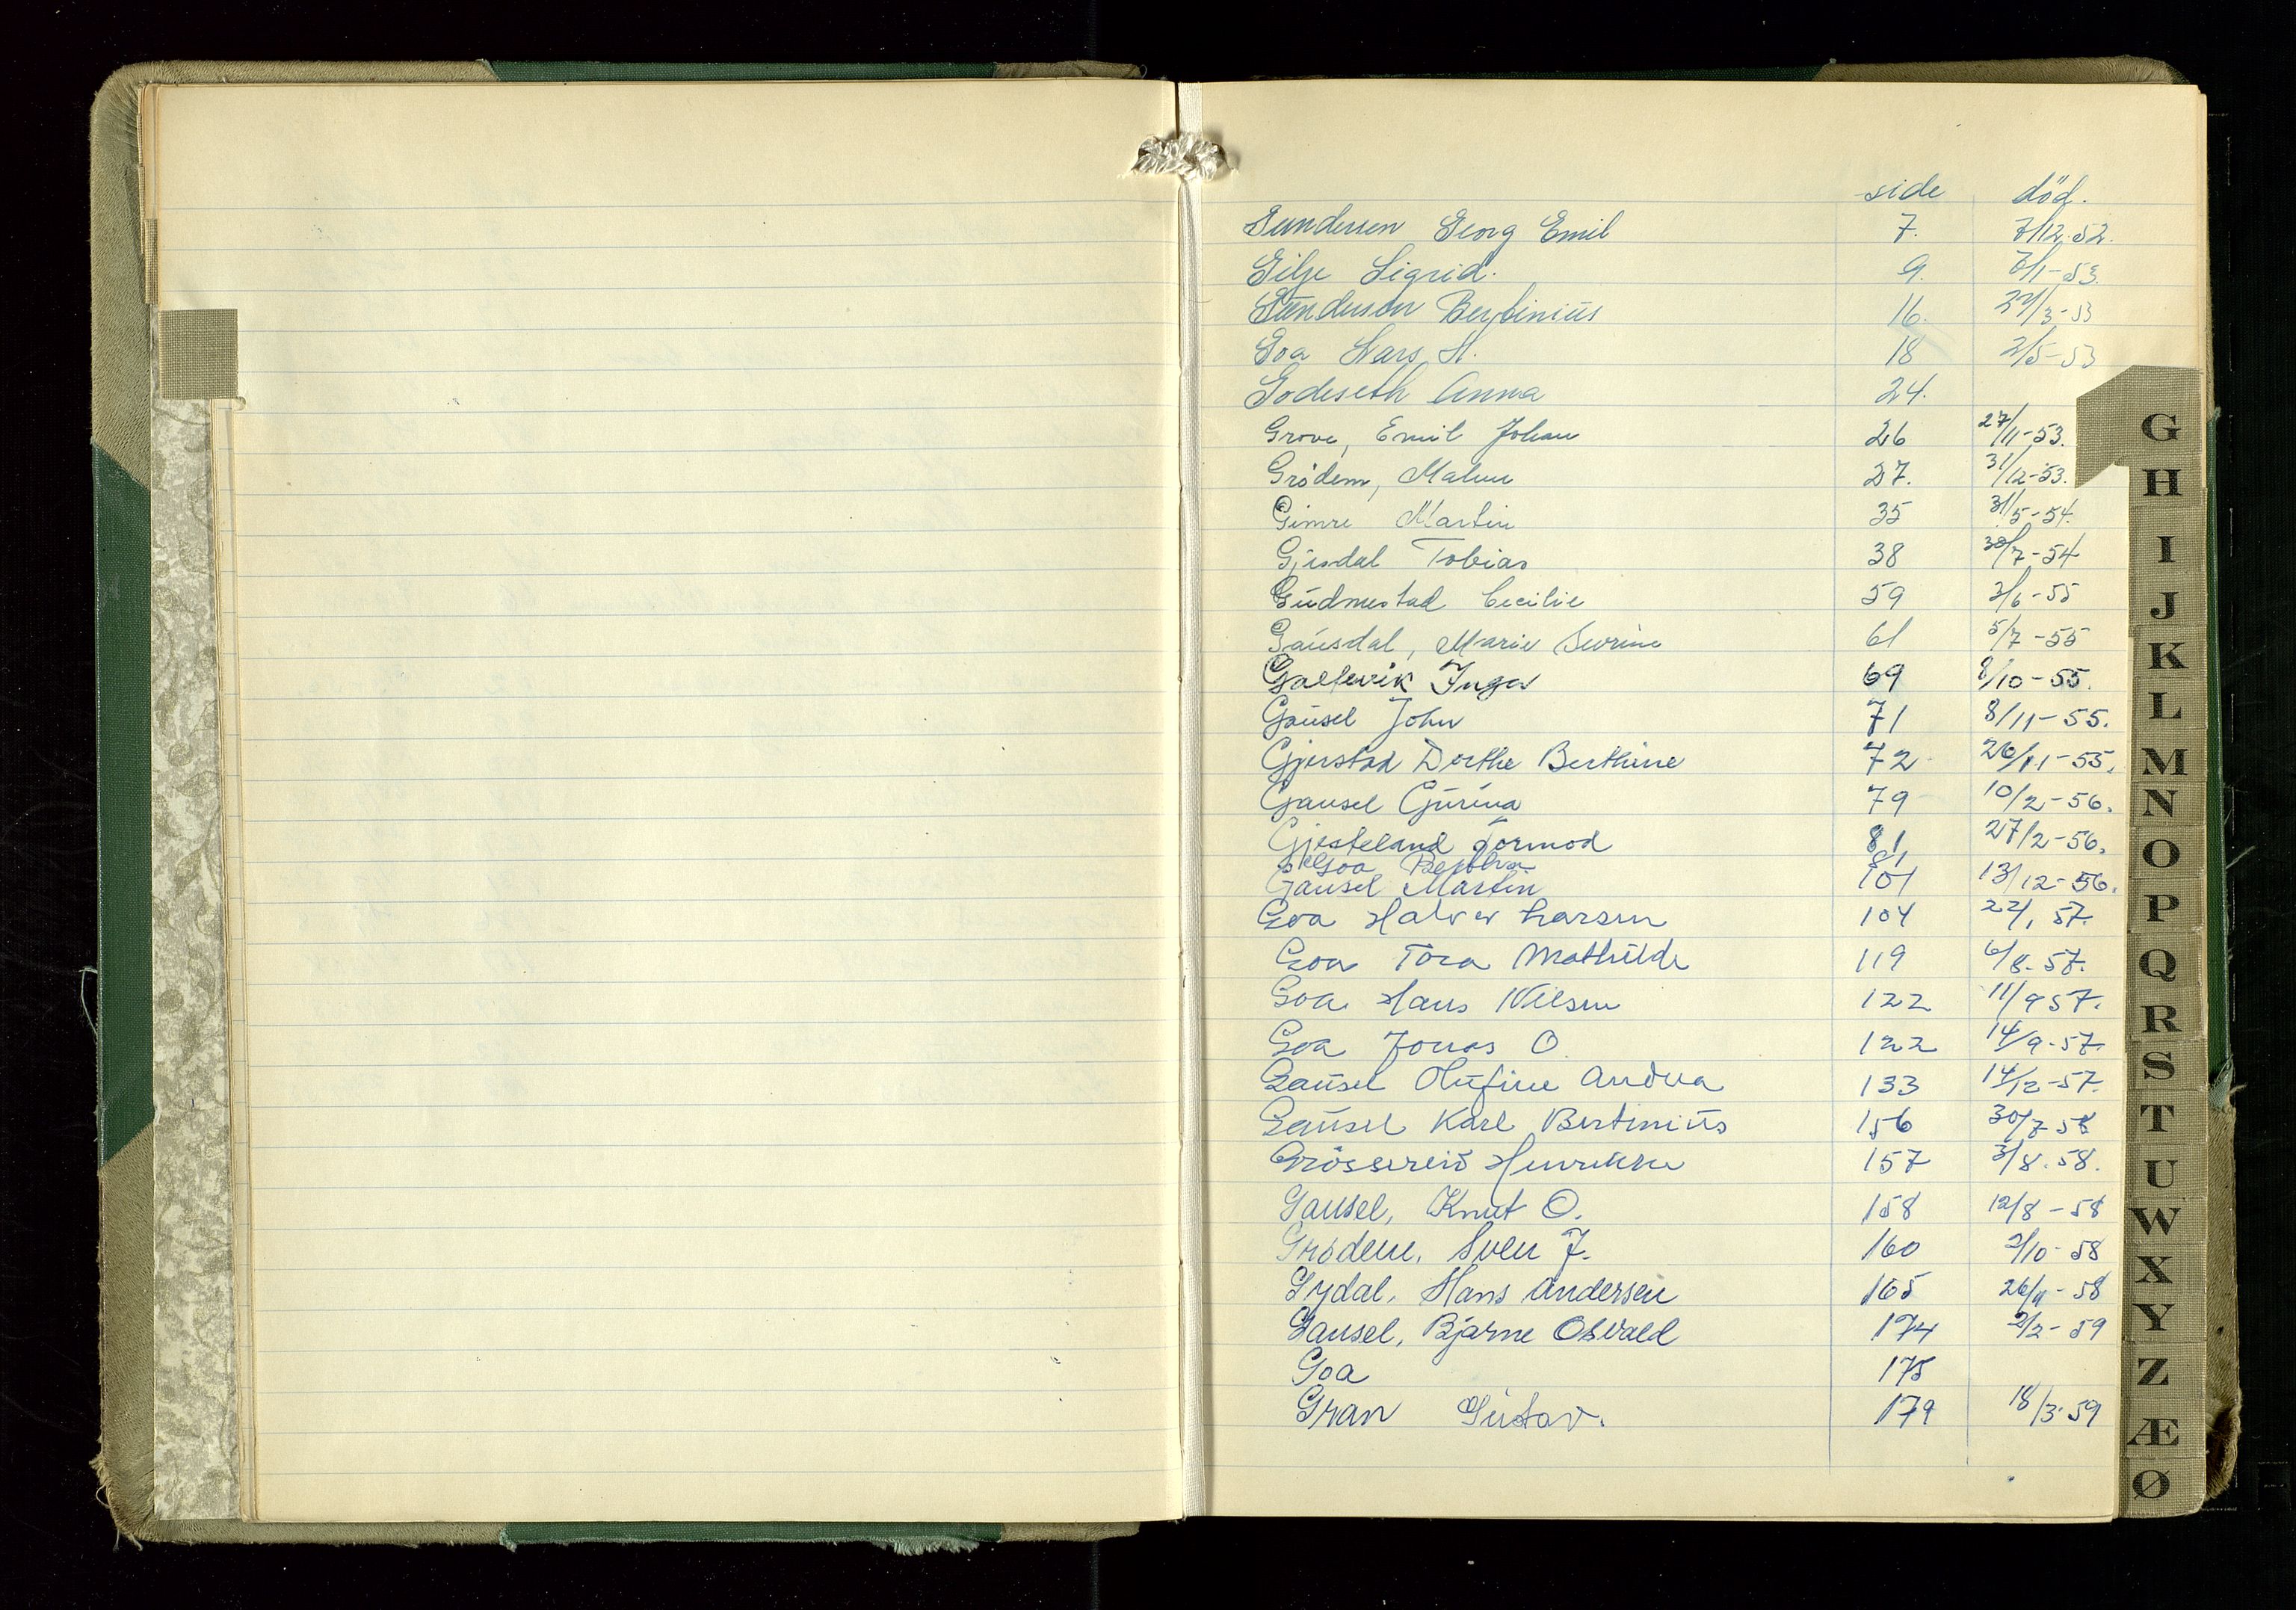 side död.
Gundersen Georg Emil 7. 7/12-52.
Gilje Sigrid. 9. 7/1-53.
Gunderson Bertinius 16. 27/3-53
Goa Lars H. 18 2/5-53
Godeseth Anna 24.
Grove, Emil Johan 26 27/11-53.
Grödem, Malene 27. 31/12-53.
Gimre Martin 35 31/5-54.
Gjesdal Tobias 38 30/7-54
Gudmestad Cecilie 59 3/6-55
Gausdal, Marie Severine 61 5/7-55
Inga 69 8/10-55.
Gausel John 71 8/11-55.
Gjerstad Dorthe Berthine 72 26/11-55.
Gausel Gurina 79 10/2-56.
Gjesteland Tormod 81 27/2-56.
Goa 81
Gausel Martin 101 13/12-56.
Goa Halvor Larsen 104 22/1 57.
Goa Tora Mathilde 119 6/8-57.
Goa Hans Nilsen 122 11/9 57.
Goa Jonas O 122 14/9-57.
Gausel Olufine Andrea 133 14/12-57.
Gausel Karl Bertinius 156 30/7 58
Grössereid Henrikke 157 3/8.58.
Gausel, Knut O. 158 12/8-58
Grödem, Sven J. 160 2/10-58
Gydal, Hans Andersen 165 26/11-58
Gausel, Bjarne Osvald 174 2/2-59
Goa 175
Gran Gustav. 179 18/3-59
G
H
I
J
K
L
M
N
O
P
Q
R
S
T
U
W
X
Y
Z
Æ
Ø